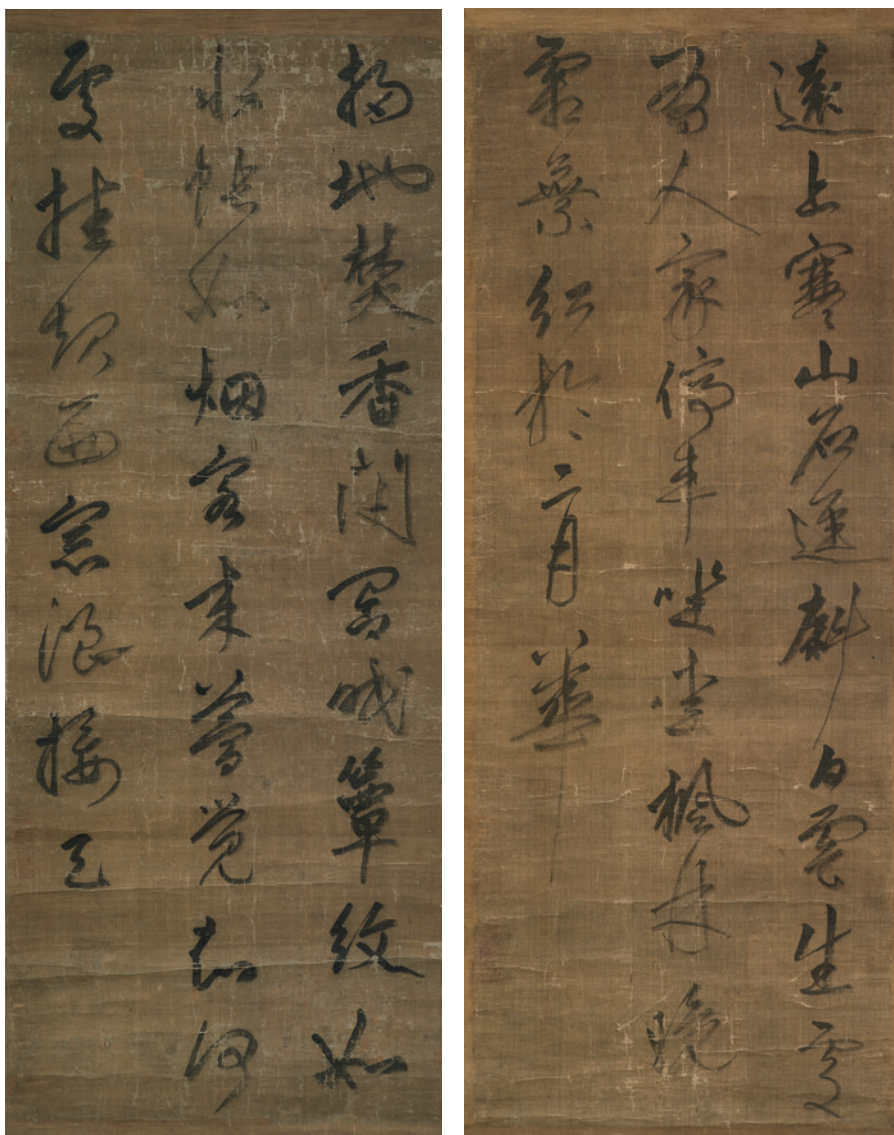 遠上寒山石逕斜白雲生處
有人家停車坐愛楓林晚
霜葉紅於二月華
掃地焚香閉閣眠簟紋如
水帳如烟客來夢覺知何
處挂起西窓浪接天